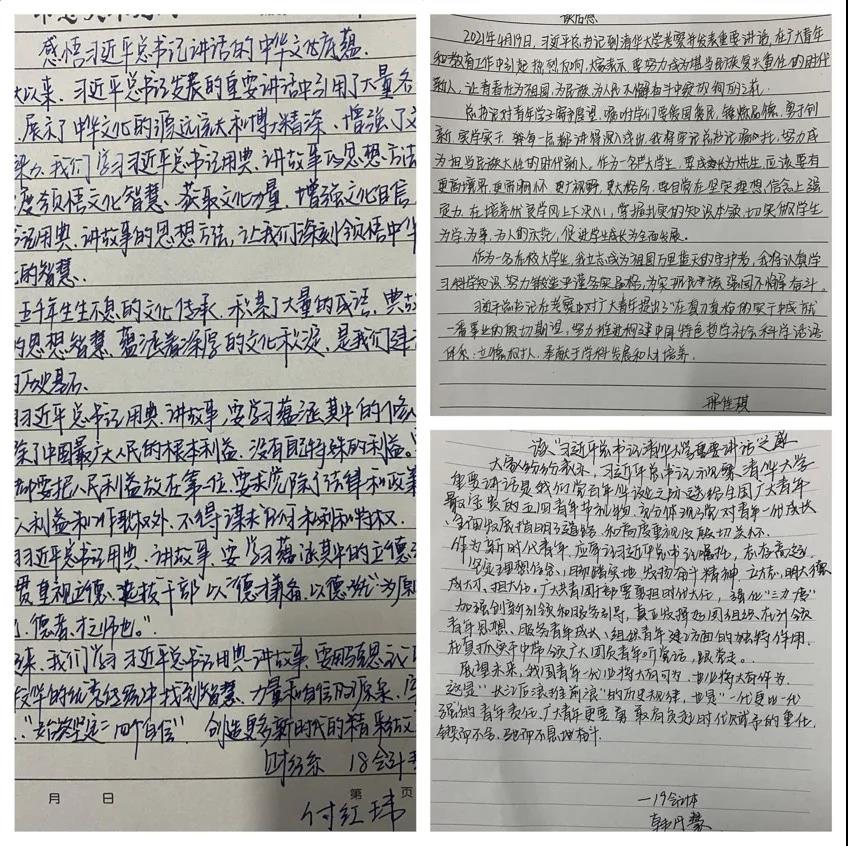 感悟习近平总书记讲话的中华文化底蕴
大以来，习近平总书记发展的重要讲话中引用了大量名
展示了中华文化的源远流长和博大精深，增强了文
我们学习习近平总书记用典、讲故事的思想方法
度领悟文化智慧、获取文化力量，增强文化自信，
书记用典、讲故事的思想方法，让我们深刻领悟中华
的智慧。
五千年生生不息的文化传承，积累了大量的成语、典故
的思想智慧，蕴涵着深厚的文化积淀，是我们
历史基石。
习近平总书记用典、讲故事，要学习蕴涵其中的
除了中国最广大人民的根本利益，没有自己特殊的利益。
都要把人民利益放在第一位，要求党除了法律和政策
人利益和工作职权外，不得谋求任何私利和特权。
习近平总书记用典、讲故事，要学习蕴涵其中的立德
贯重视立德、选拔干部以“德才兼备，以德为先”为原则
德者，才之帅也。”
我们学习习近平总书记用典、讲故事，要用马思
的优秀经典中找到智慧、力量和自信的源泉，
“始终坚定‘四个自信’，创造更多新时代的精彩故
财经系 18会计
月 日 第 页
付红玮
读后感
2021年4月19日，习近平总书记到清华大学考察并发表重要讲话，在广大青年
和教育工作中引起热烈反响，大家表示，要努力成为堪当民族复兴重任的时代
新人，让青春在为祖国、为民族、为人民不懈奋斗中绽放绚丽之花。
总书记对青年学子寄予厚望，嘱咐学们要爱国爱民，锤炼品德，勇于创
新，实学实干，每一点都讲得深入浅出，我将牢记总书记嘱托，努力成
为担当民族大任的时代新人。作为一名大学生，要成长为烘生，应该要有
更高境界、更宽胸怀、更广视野、更大格局，要自觉在坚实理想、信念上强
定力，在培养优良学风上下决心，掌握扎实的知识本领，切实做学生
为学、为事、为人的示范，促进学生成长为全面发展。
作为一名在校大学生，我立志成为祖国万里蓝天的守护者，我将认真学
习科学知识，努力锻造严谨务实品格，为实现民族强国不懈奋斗。
习近平总书记在考察中对广大青年提出了“在复刀复枪的实干中成就
一番事业的殷切期望，努力推进构建中国特色哲学社会科学话语
体系，立德树人，奉献于学科发展和人才培养。
邢佳琪
读“习近平总书记清华大学重要讲话”之感
大家纷纷表示，习近平总书记视察清华大学
重要讲话是我们党百年华诞之际送给全国广大青年
最宝贵的五四青年节礼物，充分体现了党对青年一代成长、
全面发展指明了道路，和高度重视及殷切关怀。
作为新时代青年，应牢记习近平总书记嘱托，志存高远，
坚定理想信念，脚踏实地，发扬奋斗精神，立大志，明大德
成大才，担大任，广大共青团干部要勇担时代大任，强化“三力一度”
加强创新引领和服务引导，真正发挥好团组织在引领
青年思想、服务青年成长、组织青年建功方面的独特作用，
在真抓实干中带领广大团员青年听党话，跟党走。
展望未来，我国青年一代必将大有可为，也必将大有作为，
这是“长江后浪推前浪”的历史规律，也是“一代更比一代
强”的青年责任，广大青年更要勇敢肩负起时代赋予的重任，
锲而不舍，驰而不息地奋斗。
—19会计本
韩丹蒙